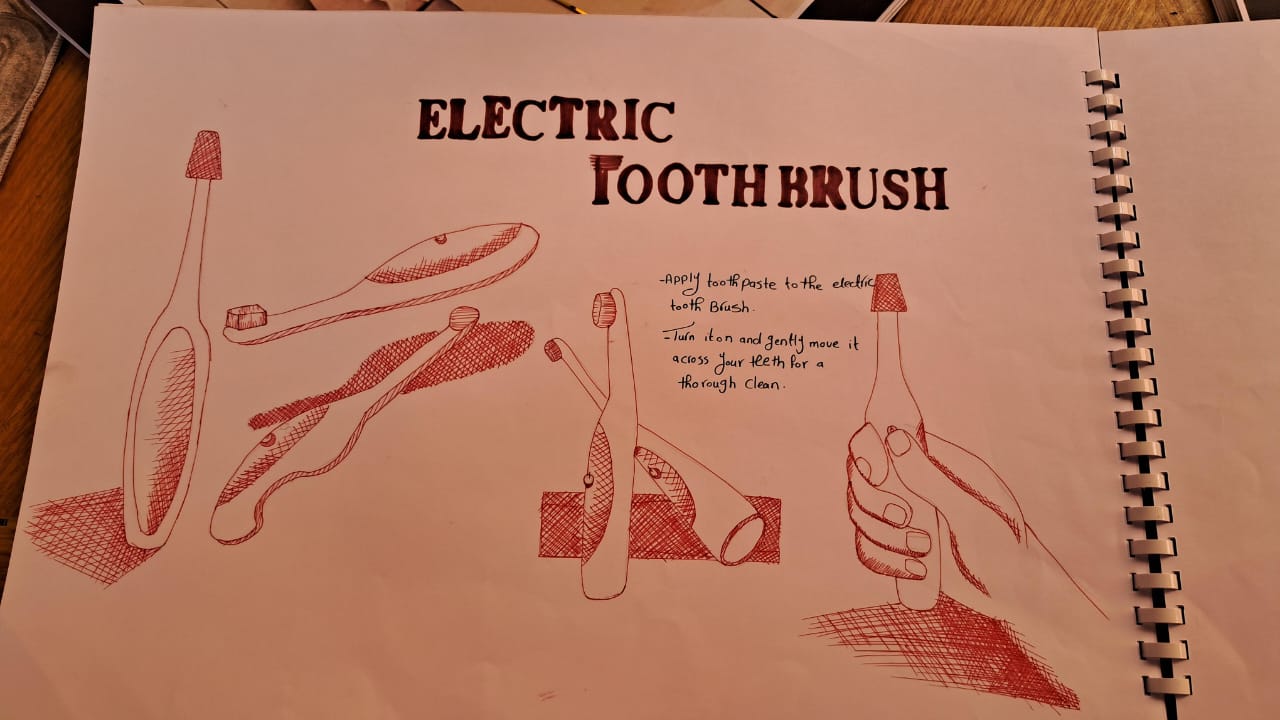 ELECTRIC
TOOTHBRUSH
-Apply toothpaste to the electric
tooth Brush.
-Turn it on and gently move it
across your teeth for a
thorough clean.